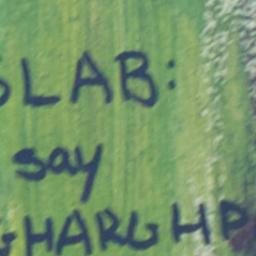 SLAB:
say
GHARGHP